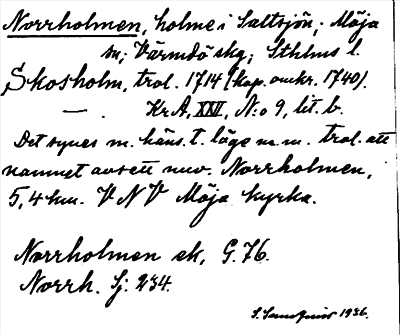 Norrholmen, holme i Saltsjön, Möja
sn, Värmdö skg, Sthlms l.
Skosholm, trol. 1714 (kop. omkr. 1740).
— . KrA, XXVI, N:o 9, lit. b.
Det synes m. häns. t. läge m. m. trol. att
namnet avsett nuv. Norrholmen,
5,4 km. V N V Möja kyrka.
Norrholmen ek, G. 76.
Norrh. Sj. 234.
1936.